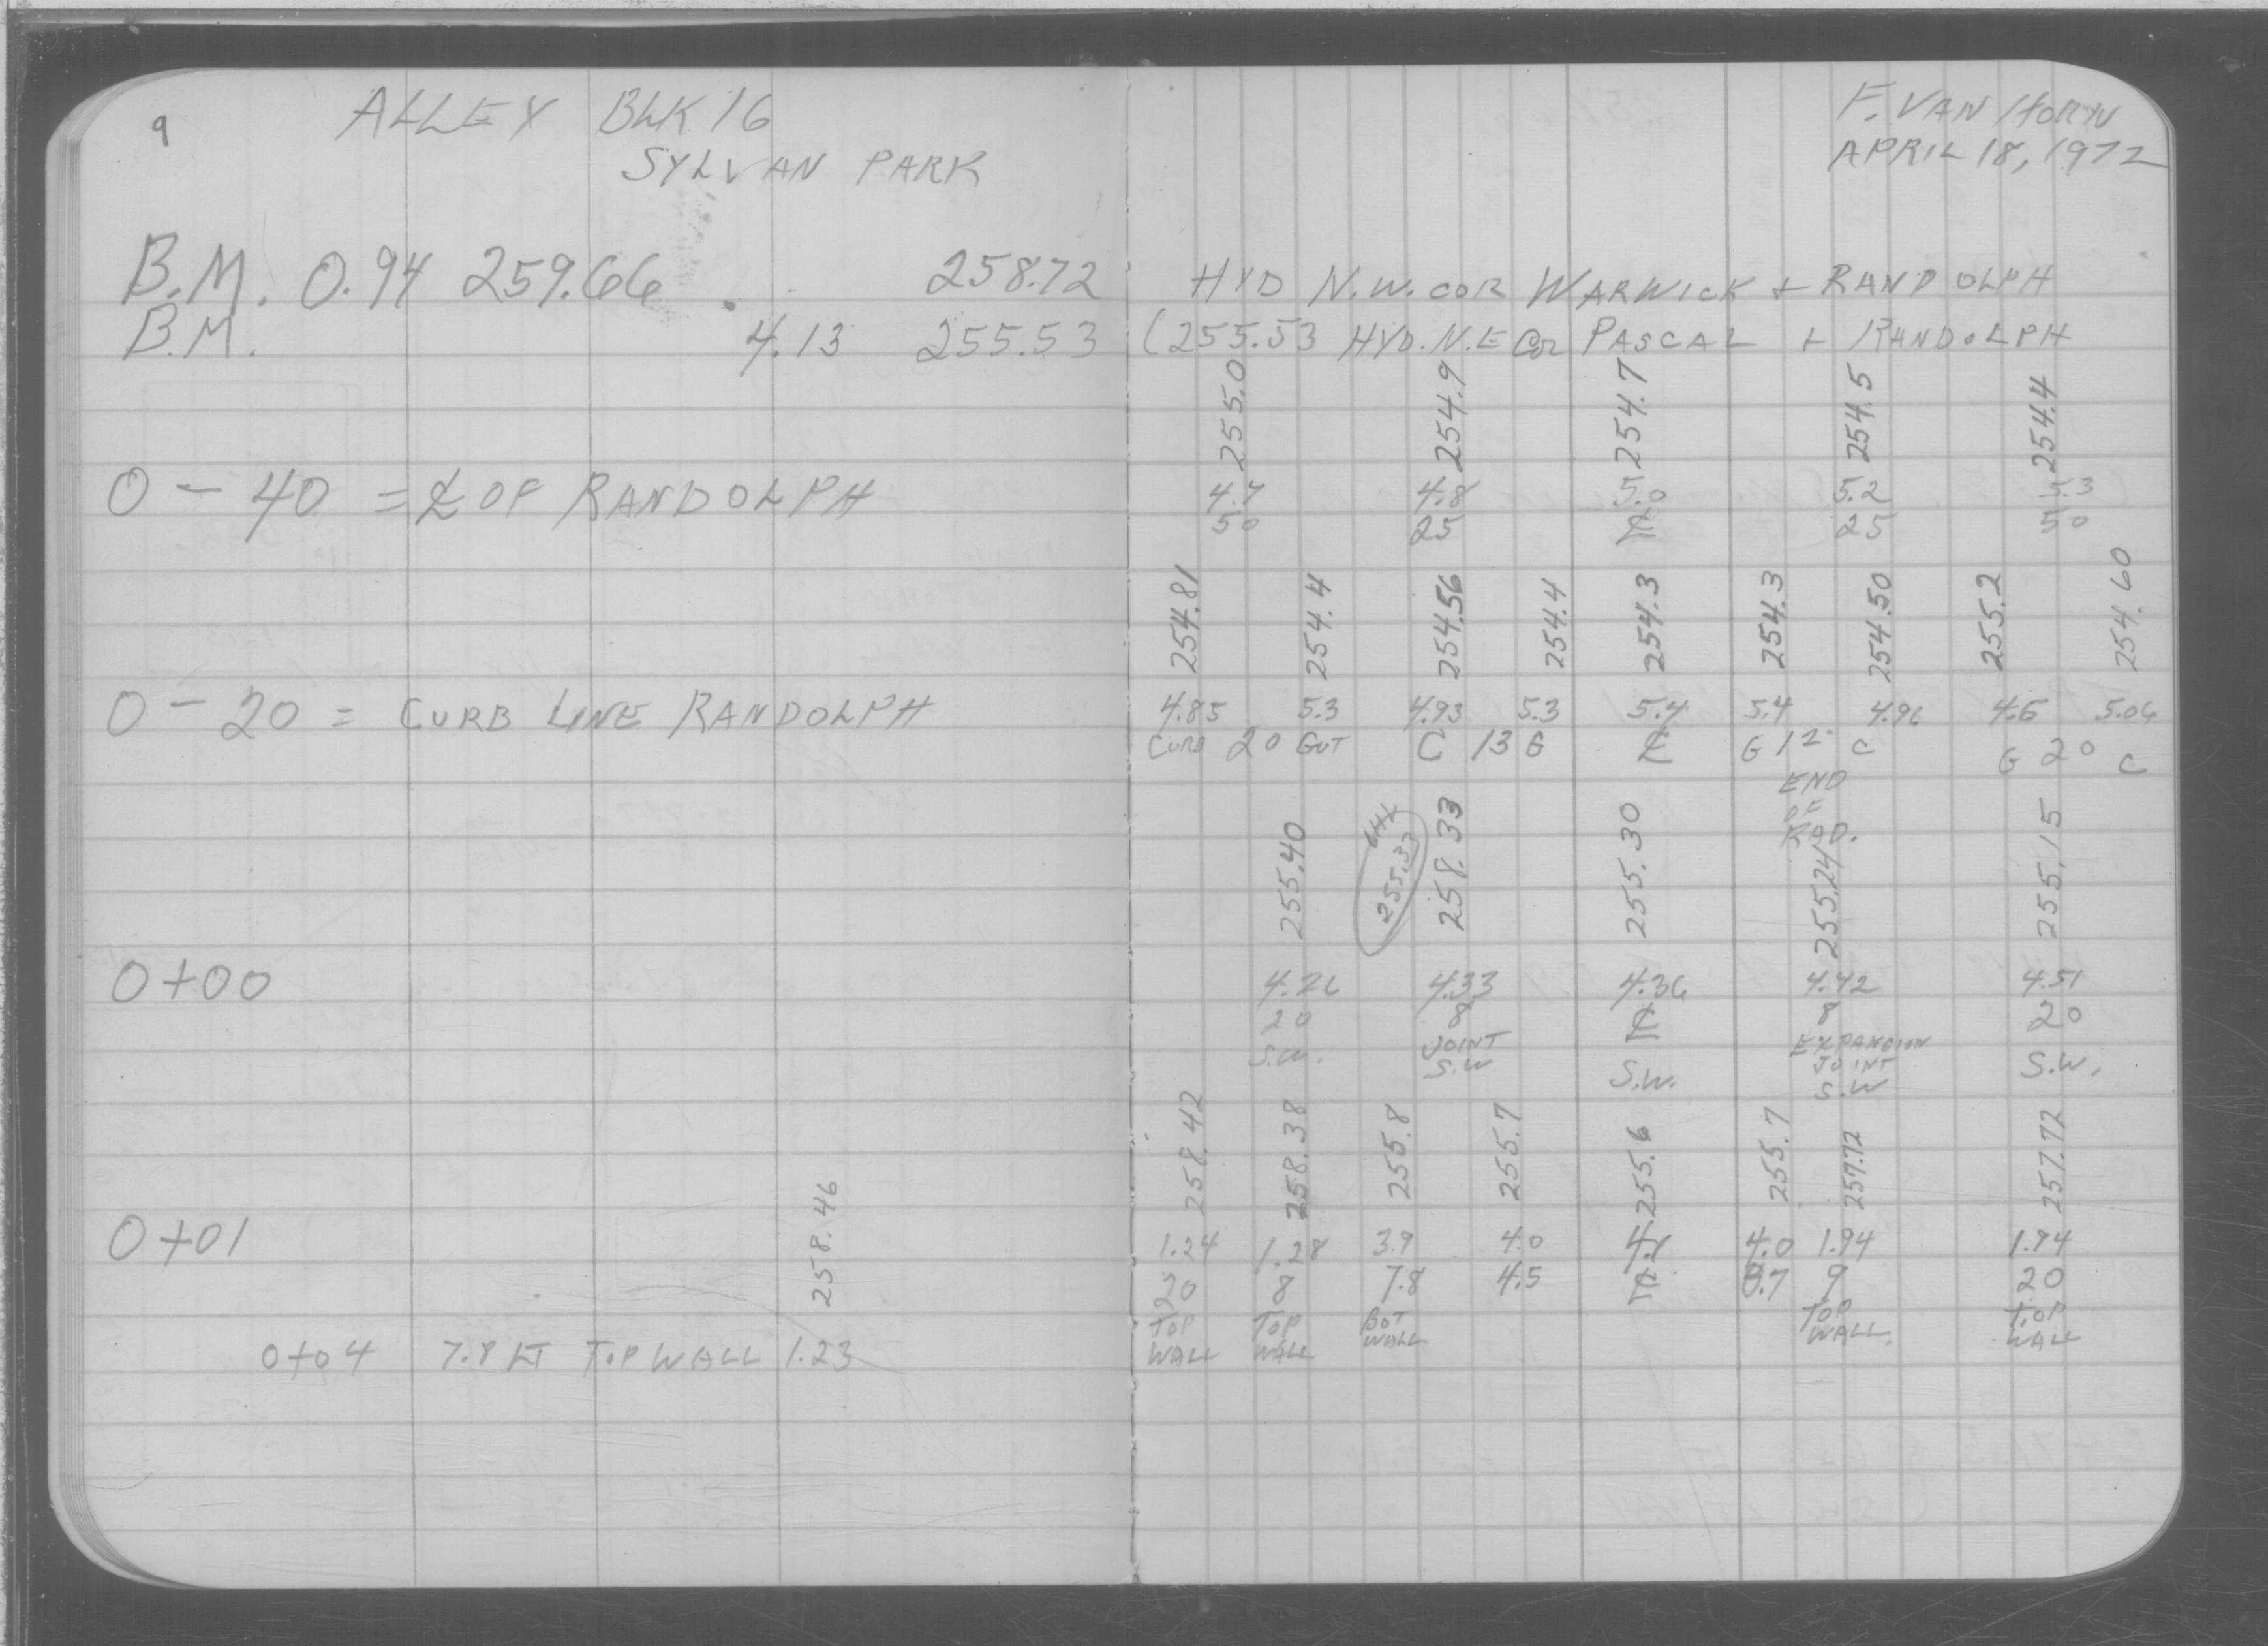 9
ALLEY BLK 16
SYLVAN PARK
F. VAN HORN
APRIL 18, 1972
B.M. 0.94 259.66 258.72 HYD N.W. COR WARWICK + RANDOLPH
B.M. 4.13 255.53 (255.53 HYD. N.E COR PASCAL + RANDOLPH
255.0 254.9 254.7 254.5 254.4
0 - 40 = ℄ OF RANDOLPH 4.7 4.8 5.0 5.2 5.3
50 25 ℄ 25 50
254.81 254.4 254.56 254.4 254.3 254.3 254.50 255.2 254.60
0 - 20 = CURB LINE RANDOLPH 4.85 5.3 4.93 5.3 5.4 5.4 4.96 4.5 5.06
CURB 20 GUT C 13 G ℄ G 12 C G 20 C
END
OF
RAD.
255.40 255.33 258.33 255.30 255.24 255.15
0+00 4.26 4.33 4.36 4.42 4.51
20 8 ℄ 8 20
S.W. JOINT S.W S.W. EXPANSION JOINT S.W S.W.
258.42 258.38 255.8 255.7 255.6 255.7 257.72 257.72
0+01 1.24 1.28 3.9 4.0 4.1 4.0 1.94 1.94
20 8 7.8 4.5 ℄ 8.7 9 20
TOP WALL TOP WALL BOT WALL TOP WALL. TOP WALL
258.46
0+04 7.8 LT TOP WALL 1.23